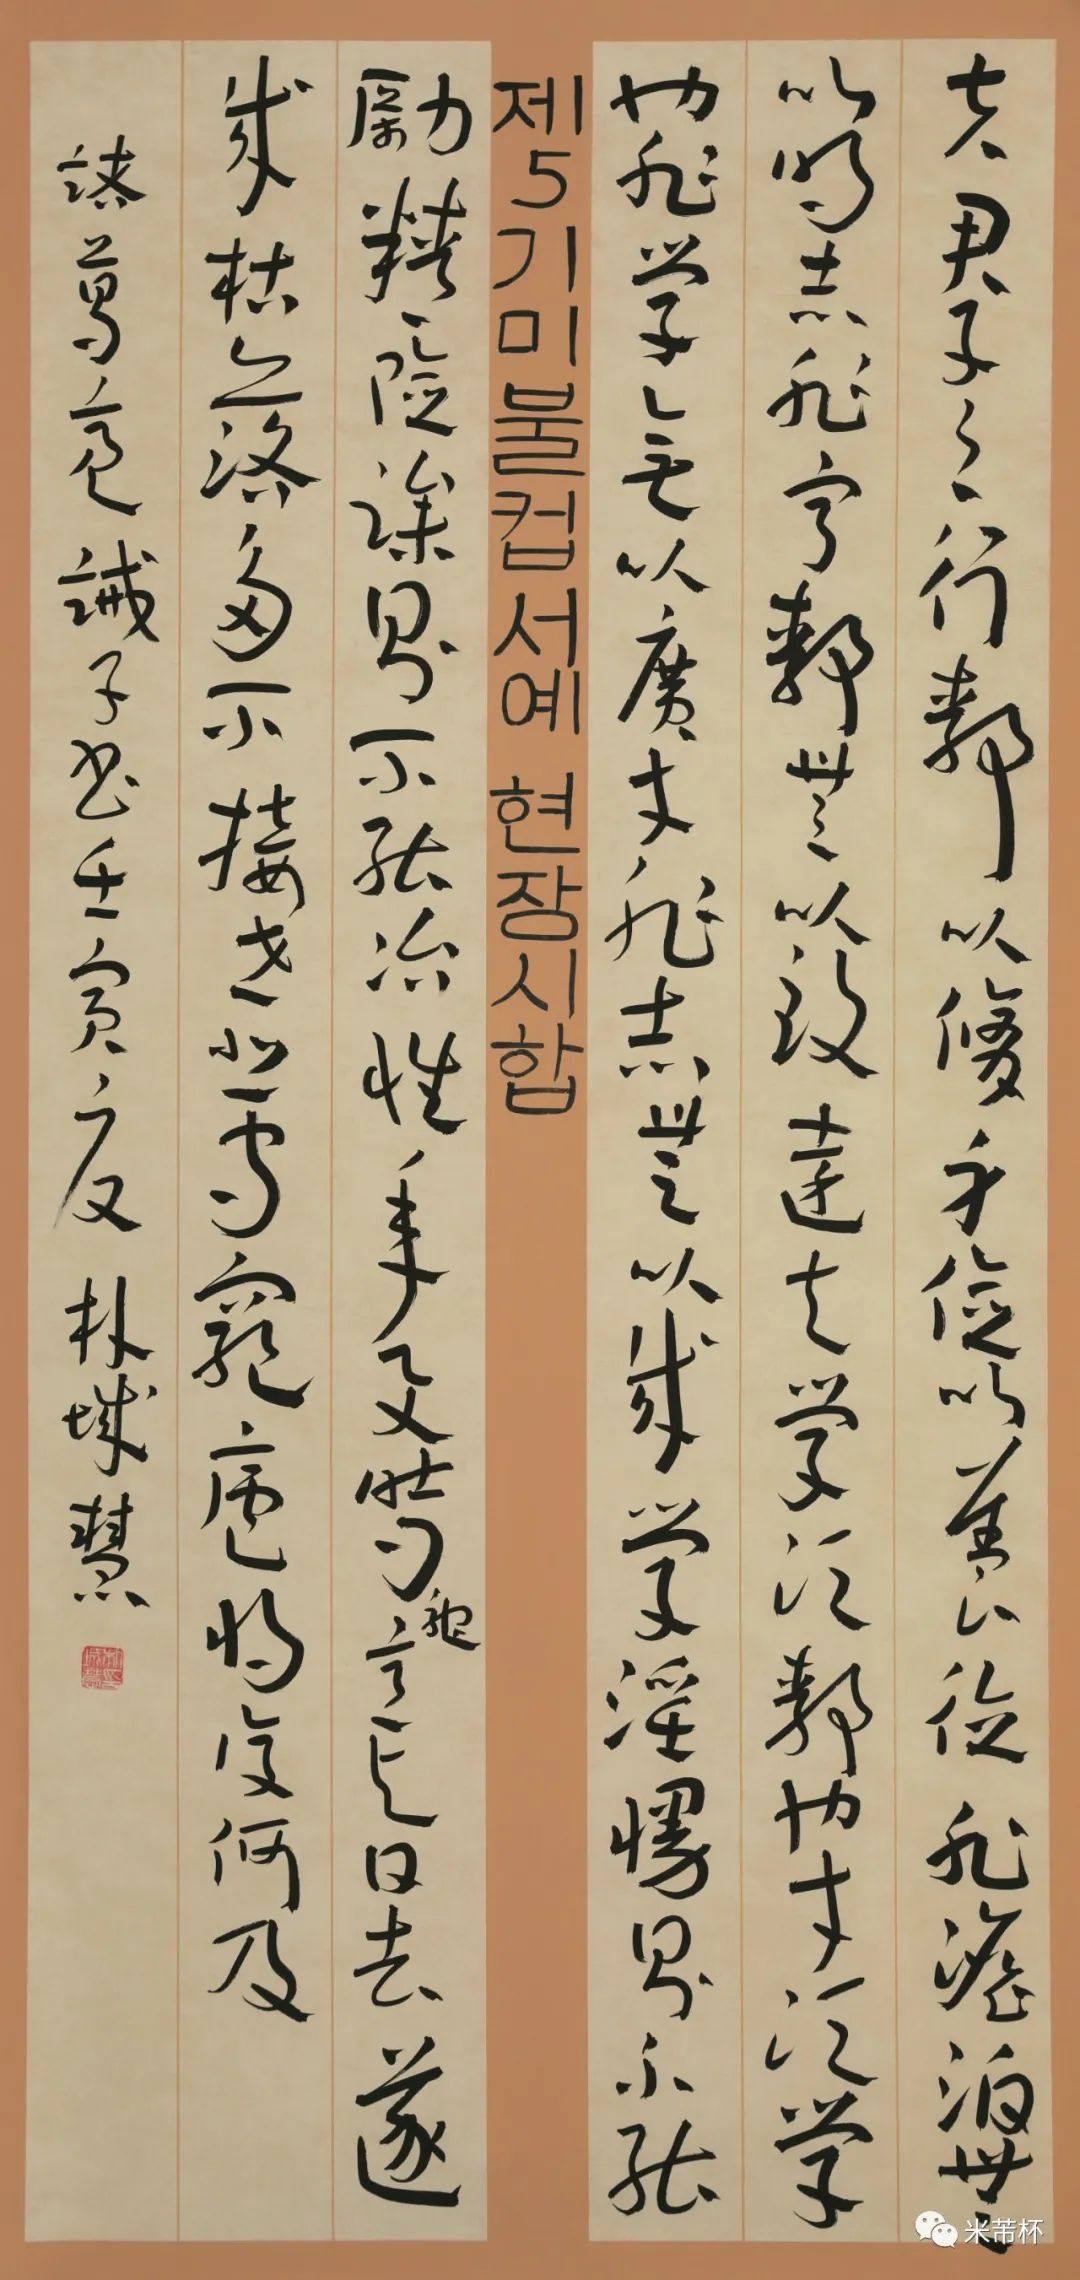 夫君子之行靜以修身儉以養德非澹泊無
以明志非寧靜無以致遠夫學須靜也才須學
也非學無以廣才非志無以成學淫慢則不能
제5기미불컵서예 현장시합
勵精險躁則不能治性年与時馳意与日去遂
成枯落多不接世悲守窮廬將復何及
諸葛亮誡子書壬寅夏 朴城慧
米芾杯